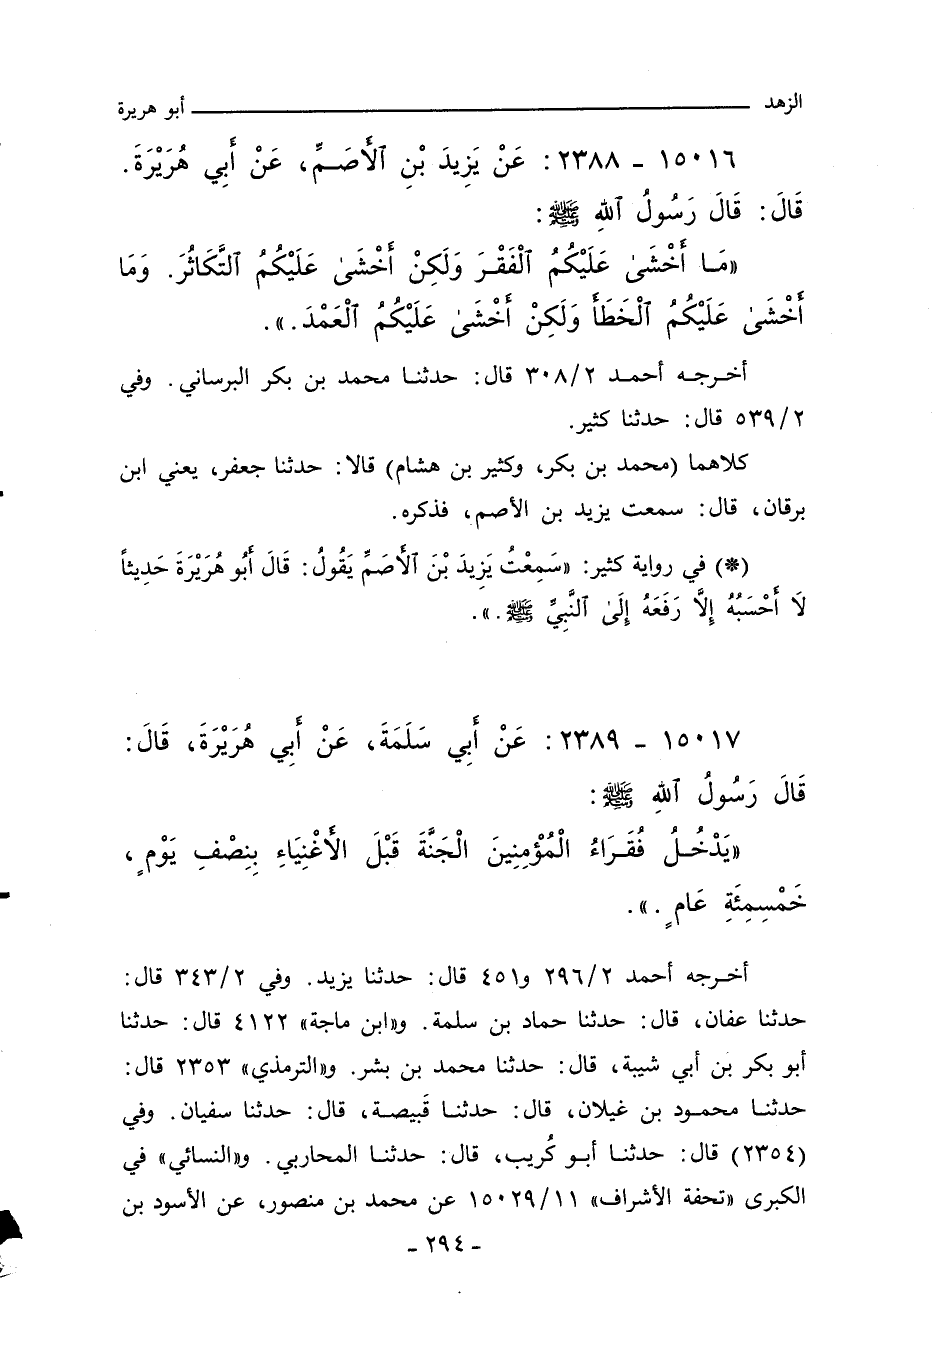 الزهد ــــــــــــــــــــ أبو هريرة
١٥٠١٦ - ٢٣٨٨ : عَنْ يَزِيدَ بْنِ ٱلْأَصَمِّ، عَنْ أَبِي هُرَيْرَةَ.
قَالَ: قَالَ رَسُولُ ٱللهِ ﷺ:
«مَا أَخْشَىٰ عَلَيْكُمُ ٱلْفَقْرَ وَلَكِنْ أَخْشَىٰ عَلَيْكُمُ ٱلتَّكَاثُرَ. وَمَا
أَخْشَىٰ عَلَيْكُمُ ٱلْخَطَأَ وَلَكِنْ أَخْشَىٰ عَلَيْكُمُ ٱلْعَمْدَ.».
أخرجه أحمد ٣٠٨/٢ قال: حدثنا محمد بن بكر البرساني. وفي
٥٣٩/٢ قال: حدثنا كثير.
كلاهما (محمد بن بكر، وكثير بن هشام) قالا: حدثنا جعفر، يعني ابن
برقان، قال: سمعت يزيد بن الأصم، فذكره.
(*) في رواية كثير: «سَمِعْتُ يَزِيدَ بْنَ ٱلْأَصَمِّ يَقُولُ: قَالَ أَبُو هُرَيْرَةَ حَدِيثاً
لَا أَحْسَبُهُ إِلَّا رَفَعَهُ إِلَىٰ ٱلنَّبِيِّ ﷺ.».
١٥٠١٧ - ٢٣٨٩ : عَنْ أَبِي سَلَمَةَ، عَنْ أَبِي هُرَيْرَةَ، قَالَ:
قَالَ رَسُولُ ٱللهِ ﷺ:
«يَدْخُلُ فُقَرَاءُ الْمُؤْمِنِينَ الْجَنَّةَ قَبْلَ الْأَغْنِيَاءِ بِنِصْفِ يَوْمٍ،
خَمْسِمِئَةِ عَامٍ.».
أخرجه أحمد ٢٩٦/٢ و٤٥١ قال: حدثنا يزيد. وفي ٣٤٣/٢ قال:
حدثنا عفان، قال: حدثنا حماد بن سلمة. و«ابن ماجة» ٤١٢٢ قال: حدثنا
أبو بكر بن أبي شيبة، قال: حدثنا محمد بن بشر. و«الترمذي» ٢٣٥٣ قال:
حدثنا محمود بن غيلان، قال: حدثنا قَبيصة، قال: حدثنا سفيان. وفي
(٢٣٥٤) قال: حدثنا أبو كُريب، قال: حدثنا المحاربي. و«النسائي» في
الكبرى «تحفة الأشراف» ١٥٠٢٩/١١ عن محمد بن منصور، عن الأسود بن
- ٢٩٤ -